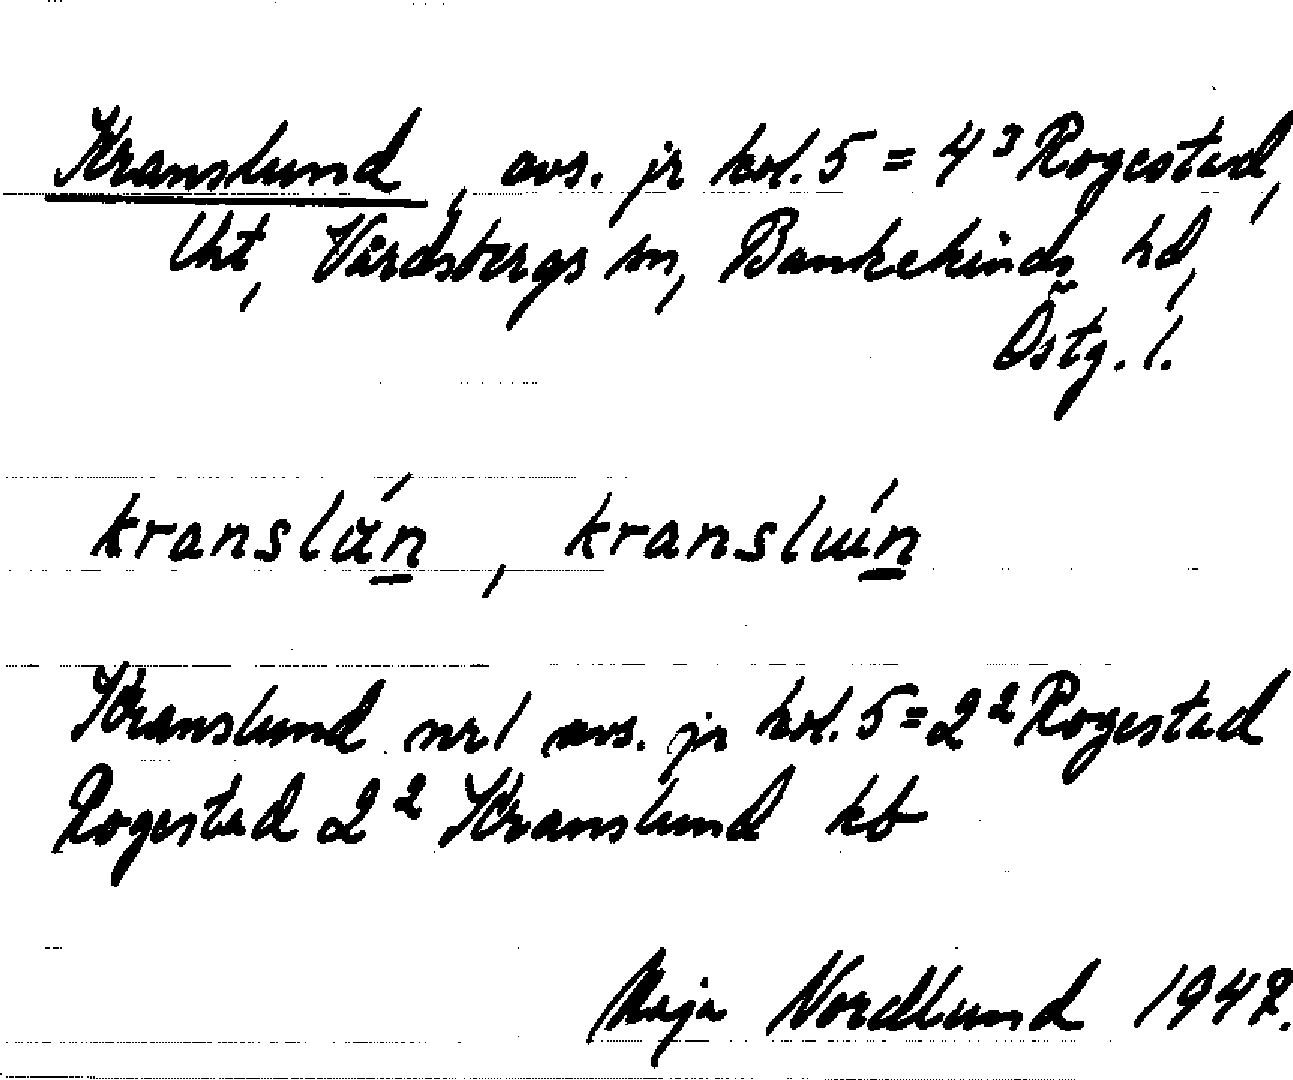 Kranslund, avs. jr kol. 5 = 4³ Rogestad,
lht, Vårdsbergs sn, Bankekinds hd,
Östg. l.
kranslún
Kranslund nr 1 avs. jr kol. 5 = 2² Rogestad
Rogestad 2² Kranslund kb
Maja Nordlund 1947.